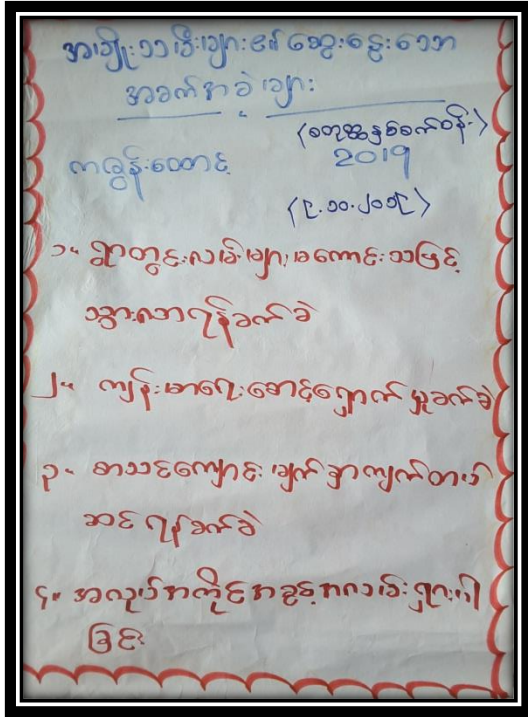 အမျိုးသားမီးများ၏ ဆွေးနွေးသော
အခက်အခဲများ
(စတုတ္ထနှစ်ဝက်ဝန်း)
2019
ကျွန်းထောင့်
(၉.၁၀.၂၀၁၉)
၁။ ရွာတွင်းလမ်းများမကောင်းသဖြင့်
သွားလာရန်ခက်ခဲ
၂။ ကျန်းမာရေးစောင့်ရှောက်မှုခက်ခဲ
၃။ စာသင်ကျောင်း မျက်နှာကျက်တပ်
ဆင်ရန်ခက်ခဲ
၄။ အလုပ်အကိုင်အခွင့်အလမ်းရှားပါး
ခြင်း